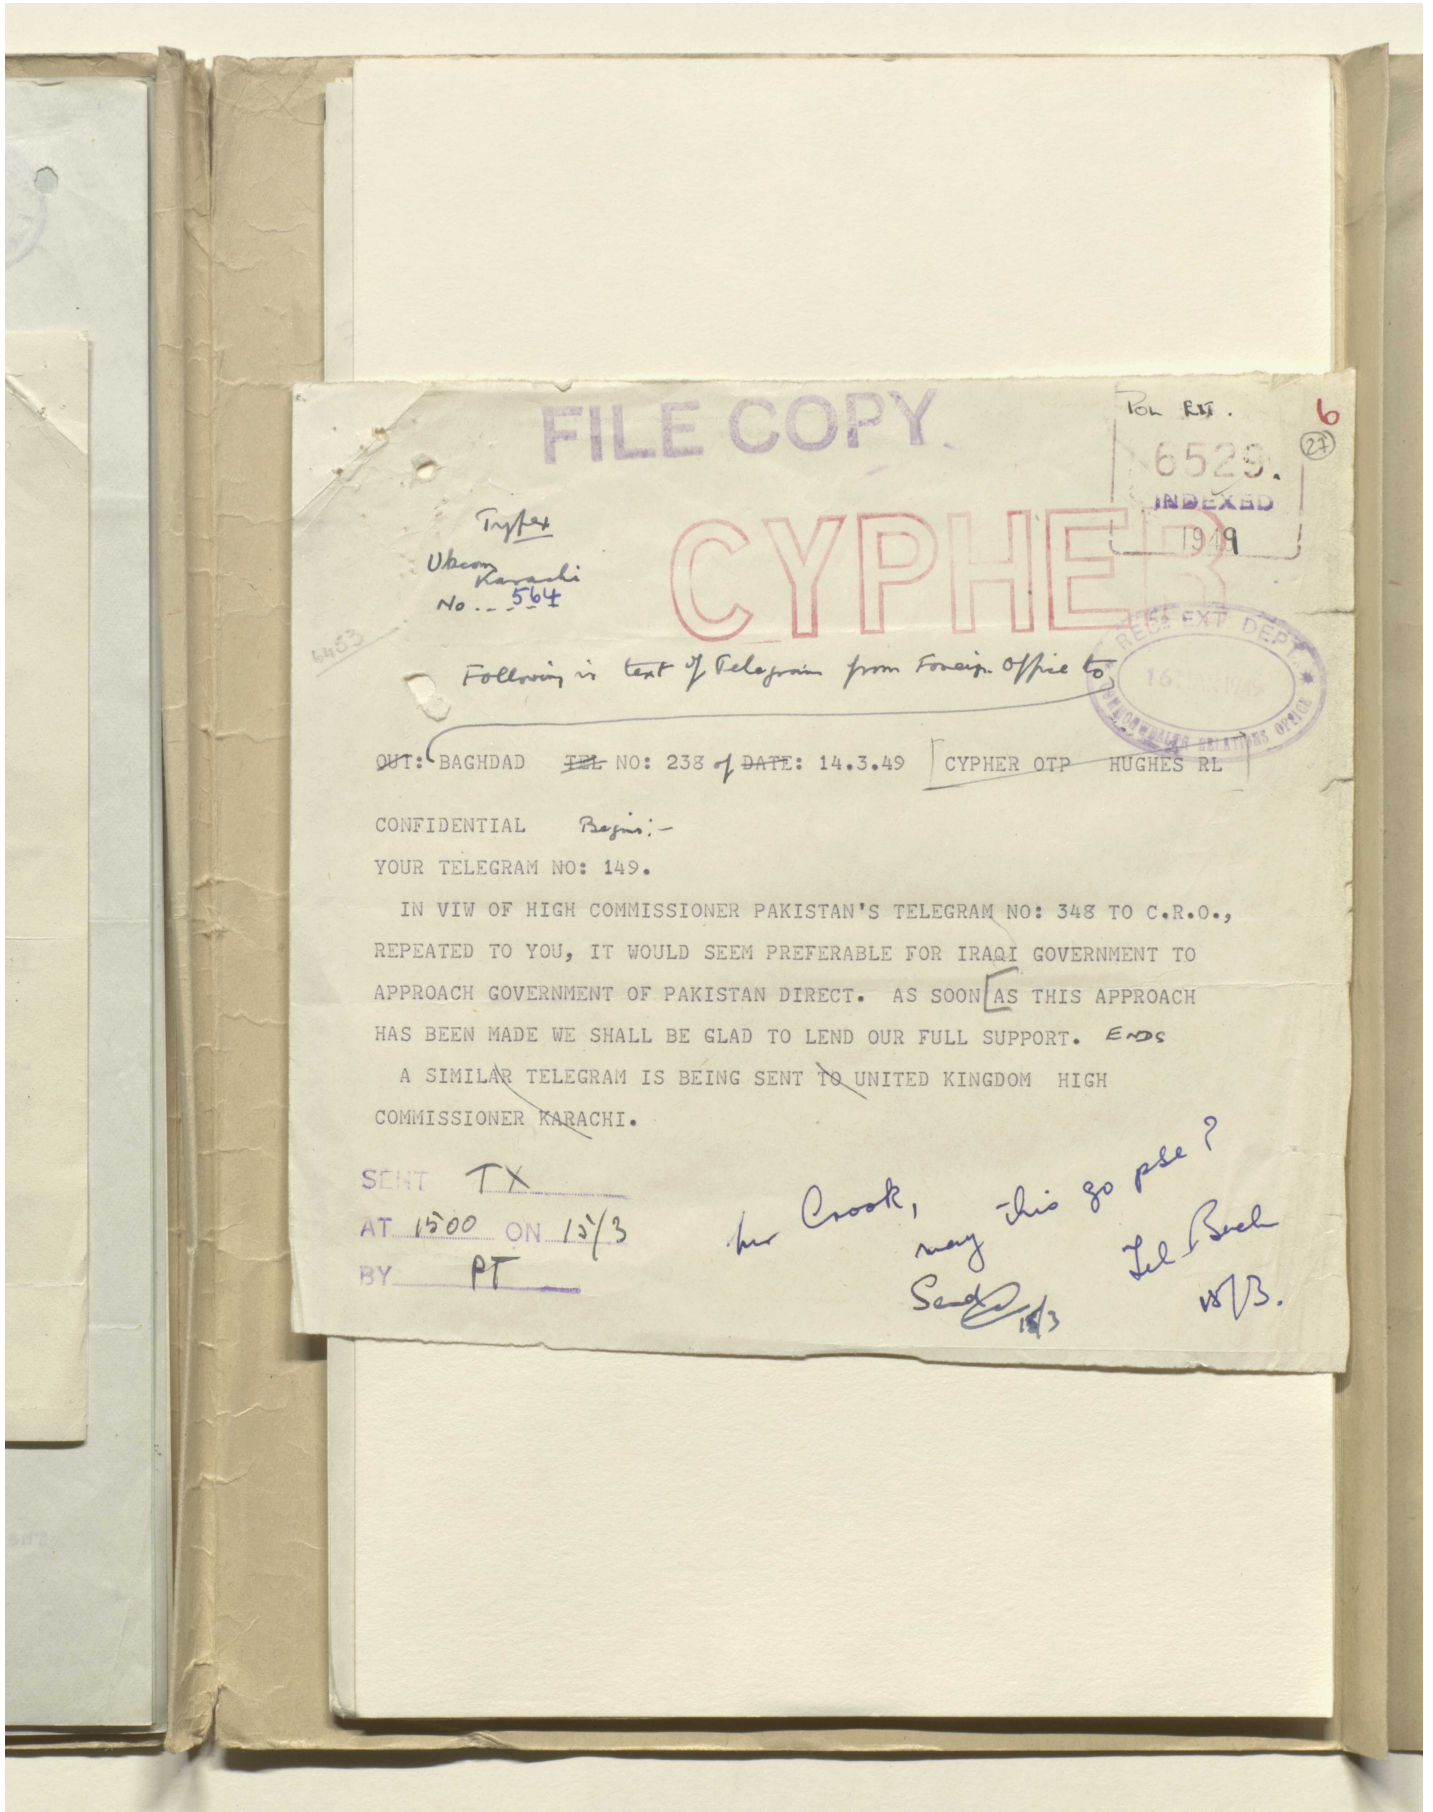 FILE COPY.
Pol Ext.
6
27
6529.
INDEXED
1949
CYPHER
Typex
Ukcom
Karachi
No... 564
6453
RECd. EXT. DEPT.
COMMONWEALTH RELATIONS OFFICE
Following is text of Telegram from Foreign Office to
OUT: BAGHDAD TEL NO: 238 of DATE: 14.3.49 [CYPHER OTP HUGHES RL]
CONFIDENTIAL Begins:-
YOUR TELEGRAM NO: 149.
IN VIW OF HIGH COMMISSIONER PAKISTAN'S TELEGRAM NO: 348 TO C.R.O.,
REPEATED TO YOU, IT WOULD SEEM PREFERABLE FOR IRAQI GOVERNMENT TO
APPROACH GOVERNMENT OF PAKISTAN DIRECT. AS SOON [AS THIS APPROACH
HAS BEEN MADE WE SHALL BE GLAD TO LEND OUR FULL SUPPORT. ENDS
A SIMILAR TELEGRAM IS BEING SENT TO UNITED KINGDOM HIGH
COMMISSIONER KARACHI.
SENT TX
AT 1500 ON 15/3
BY PT
Mr Crook,
may this go pse?
Send
15/3
Tel. Bch
15/3.